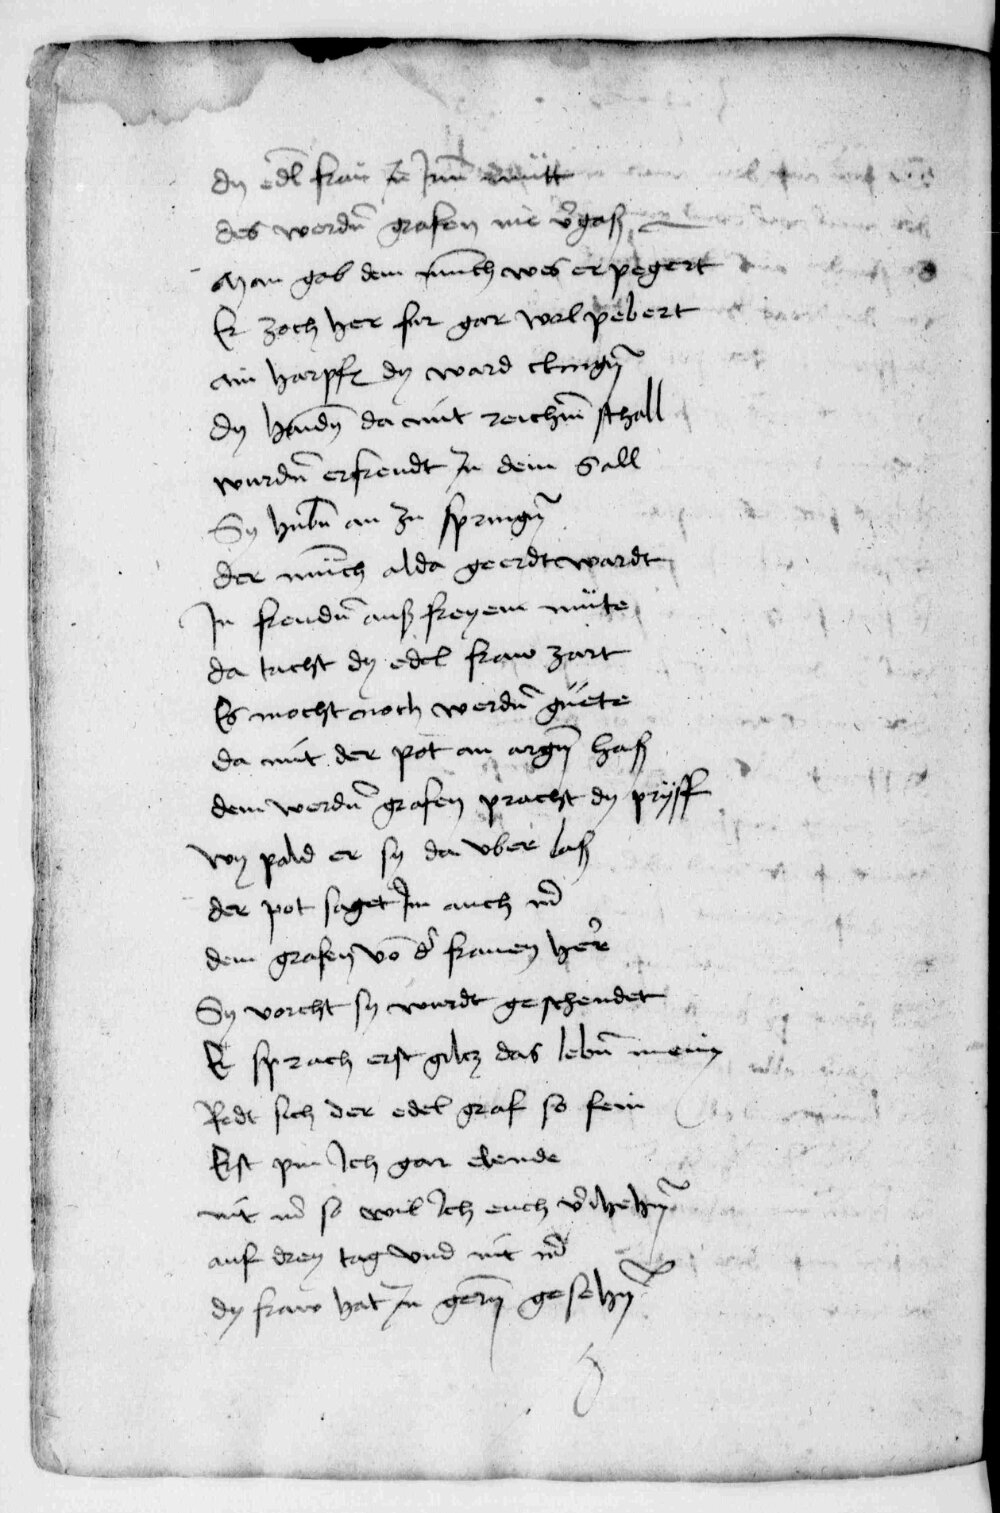 dy edl frau in Jrm mütt
des werdn̄ grafen nie v̄gaß
Man gab dem münch wes er pegert
Er zoch her fur gar wol pebert
ain harpfƺ dy ward clingn̄
dy hundn̄ da mit reichm̄ schall
wurdn̄ erfreudt Jn dem Sall
Sy hubn̄ an zu springn̄
der münch alda geerdt wardt
Jn freudn̄ auß freyem müte
da tacht dy edel fraw zart
Es mocht noch werdn̄ güete
da mit der pot an argn̄ haß
dem werdn̄ grafen pracht dy prÿff
wy pald er sy da vber laß
der pot saget Jm auch
dem grafen vō d̄ frauen her̄
Sy vorcht sy wurdt geschendet
Er sprach erst gilcz das lebn̄ mein
Redt sich der edel graf so fein
Erst pin Jch gar elende
nit so wil Jch euch
auf drey tag vnd nit
dy fraw hat Jn gern̄ gesehn̄